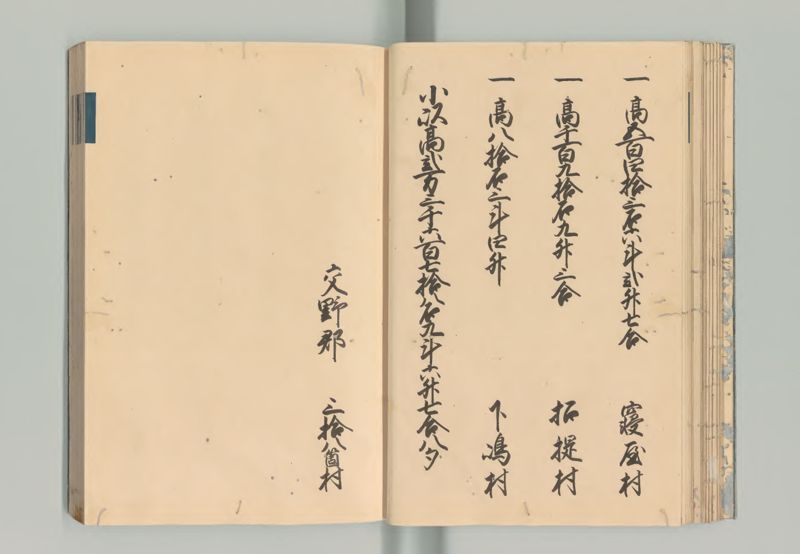 一 高五百四拾三石六斗弐升七合 寝屋村
一 高千百九拾石九升三合 招提村
一 高八拾石三斗四升 下嶋村
小以高弐万三千六百七拾八石九斗六升七合八夕
交野郡 三拾八箇村